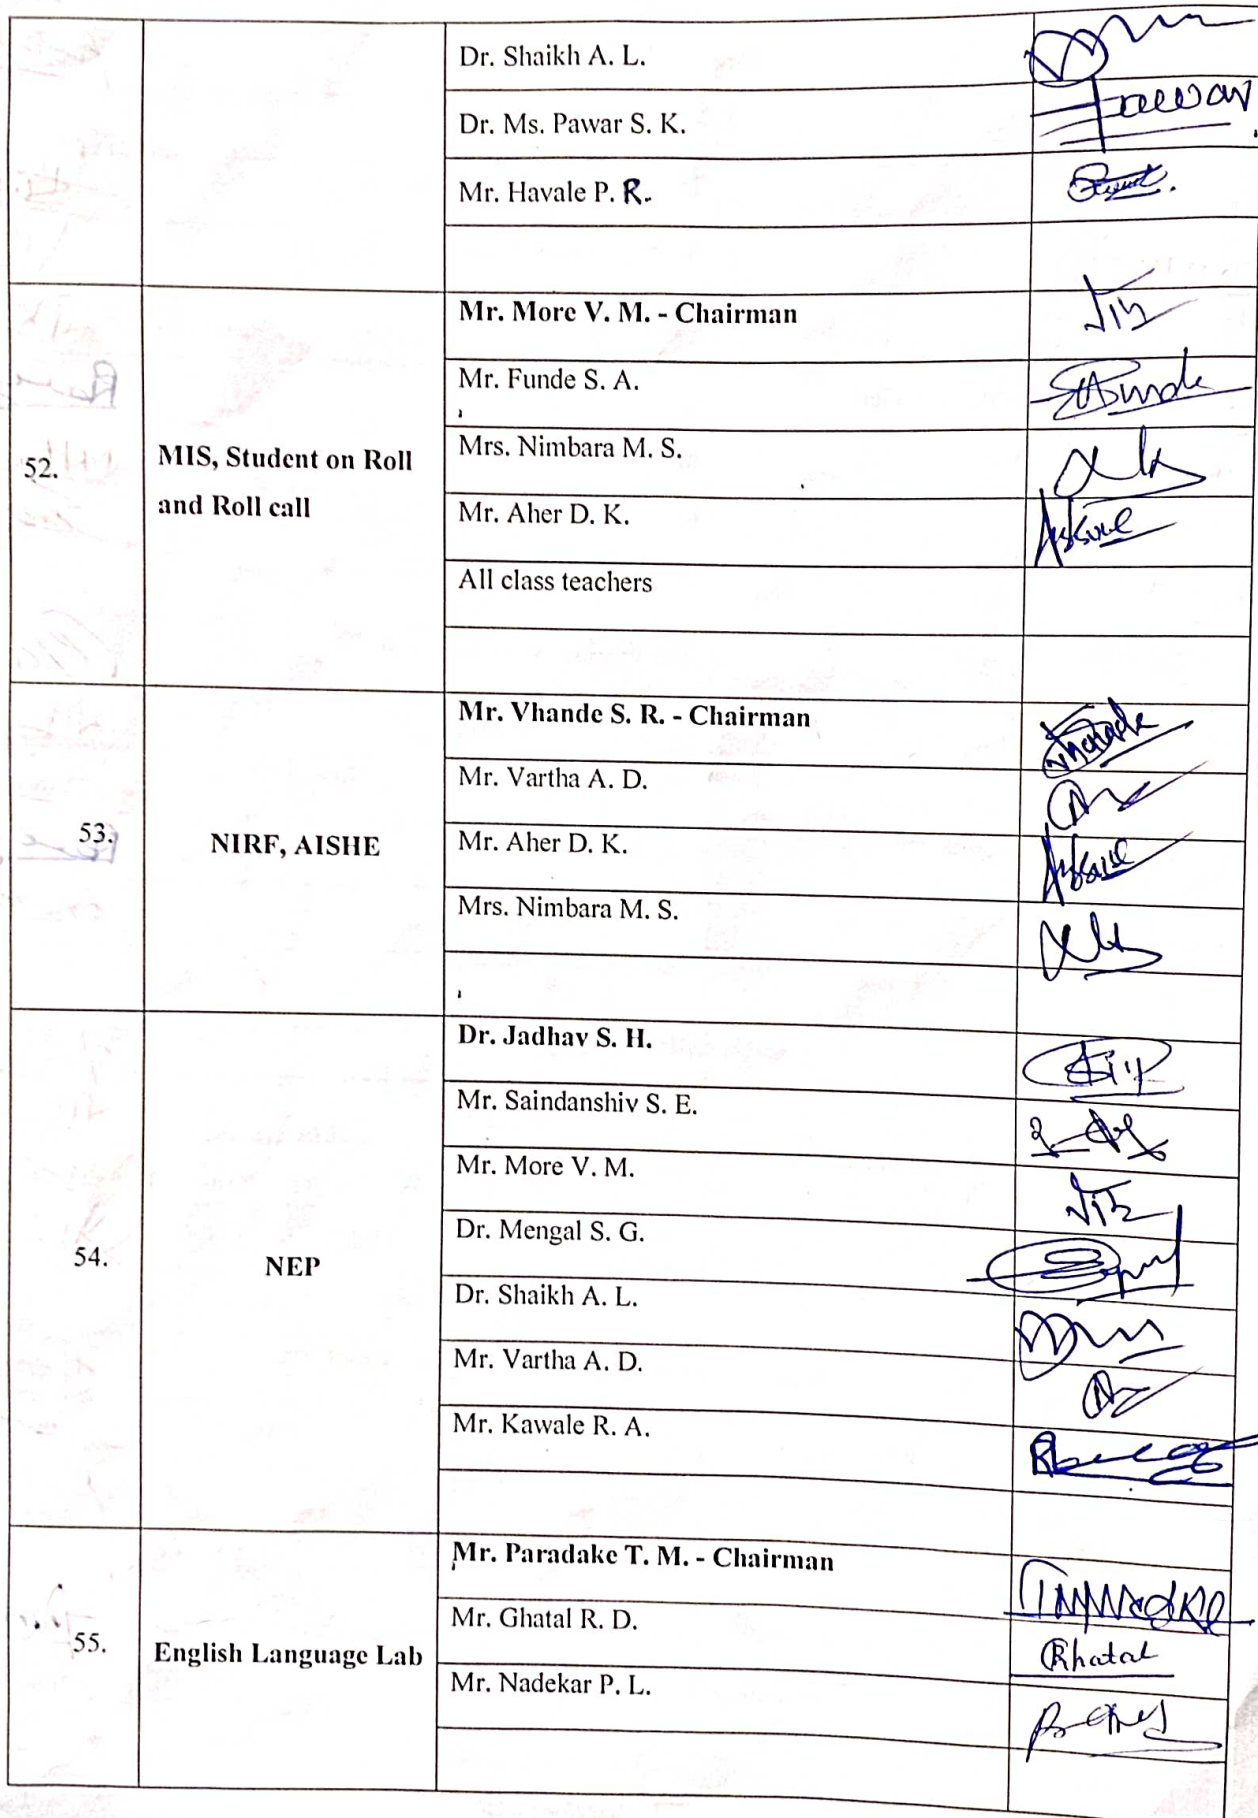 Dr. Shaikh A. L.
Dr. Ms. Pawar S. K.
Mr. Havale P. R.
52.
MIS, Student on Roll
and Roll call
Mr. More V. M. - Chairman
Mr. Funde S. A.
Mrs. Nimbara M. S.
Mr. Aher D. K.
All class teachers
53.
NIRF, AISHE
Mr. Vhande S. R. - Chairman
Mr. Vartha A. D.
Mr. Aher D. K.
Mrs. Nimbara M. S.
54.
NEP
Dr. Jadhav S. H.
Mr. Saindanshiv S. E.
Mr. More V. M.
Dr. Mengal S. G.
Dr. Shaikh A. L.
Mr. Vartha A. D.
Mr. Kawale R. A.
55.
English Language Lab
Mr. Paradake T. M. - Chairman
Mr. Ghatal R. D.
Rhatal
Mr. Nadekar P. L.